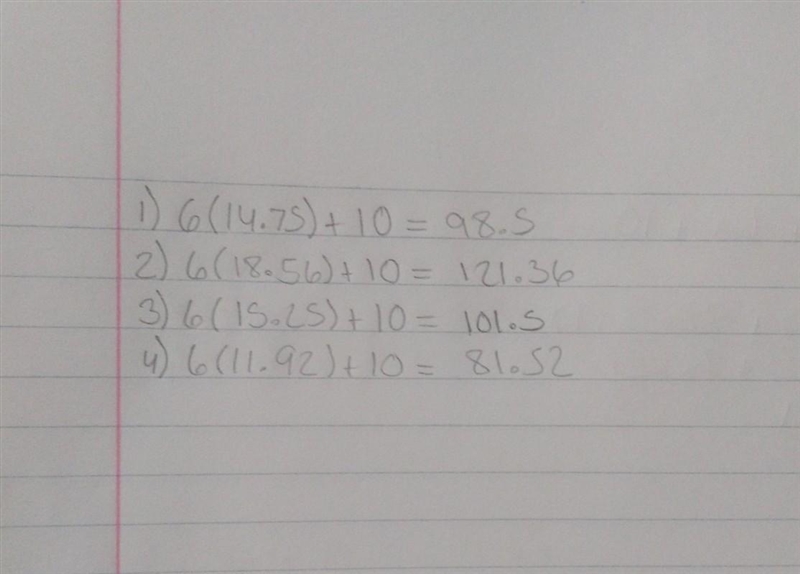 1) 6(14.75)+10 = 98.5
2) 6(18.56)+10 = 121.36
3) 6(15.25)+10 = 101.5
4) 6(11.92)+10 = 81.52